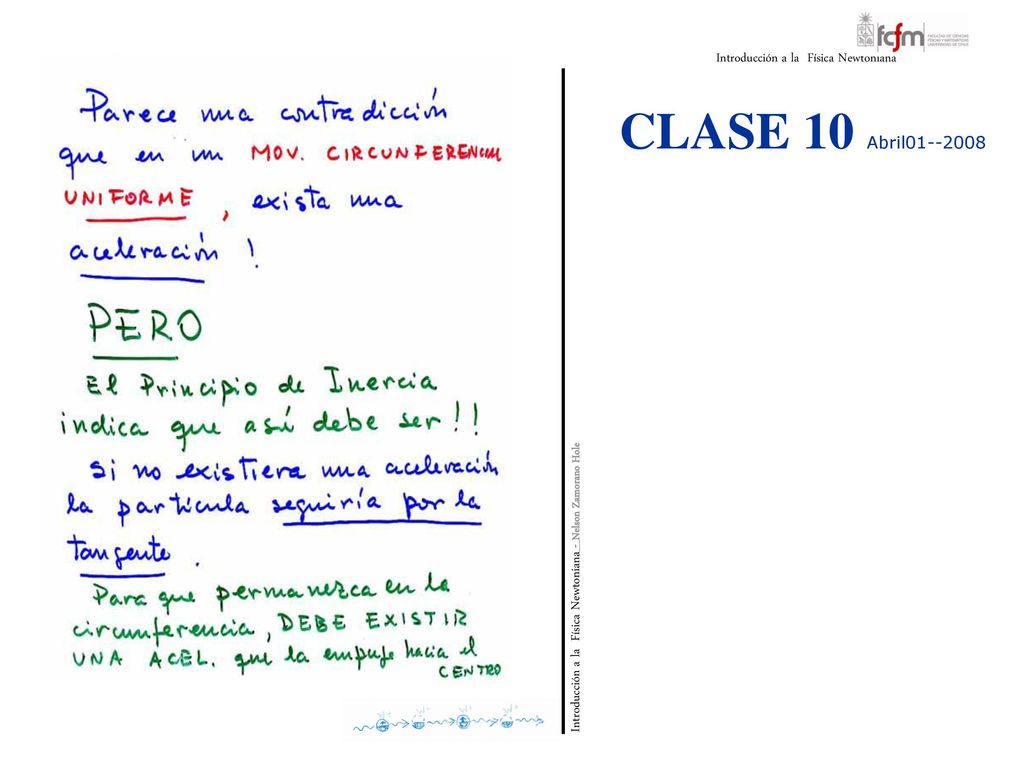 fcfm FACULTAD DE CIENCIAS
FÍSICAS Y MATEMÁTICAS
UNIVERSIDAD DE CHILE
Introducción a la Física Newtoniana
CLASE 10 Abril01--2008
Parece una contradicción
que en un MOV. CIRCUNFERENCIAL
UNIFORME, exista una
aceleración !
PERO
El Principio de Inercia
indica que así debe ser!!
Si no existiera una aceleración
la partícula seguiría por la
tangente.
Para que permanezca en la
circunferencia, DEBE EXISTIR
UNA ACEL. que la empuje hacia el
CENTRO
Introducción a la Física Newtoniana - Nelson Zamorano Hole